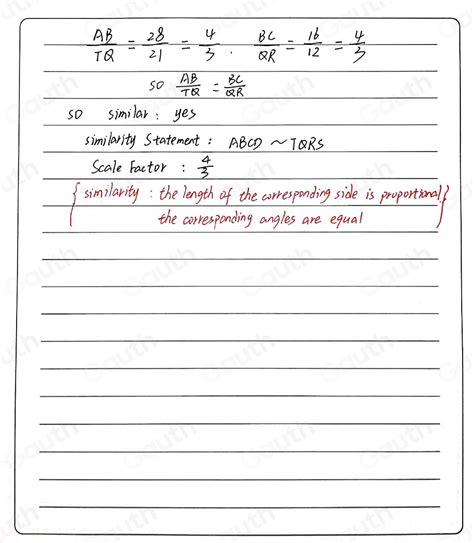 AB/TQ = 28/21 = 4/3 . BC/QR = 16/12 = 4/3
so AB/TQ = BC/QR
so similar : yes
similarity Statement : ABCD ~ TQRS
Scale Factor : 4/3
{ similarity : the length of the corresponding side is proportional }
the corresponding angles are equal
Gauth